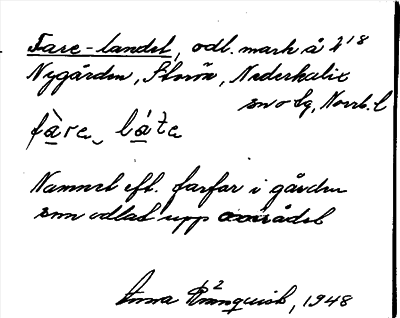 Fare-landet, odl. mark å 2¹⁸
Nygården, Storön, Nederkalix
sn o tg, Norrb. l
fàra, láta
Namnet eft. farfar i gården
som odlat upp området
Anna Brännquist, 1948